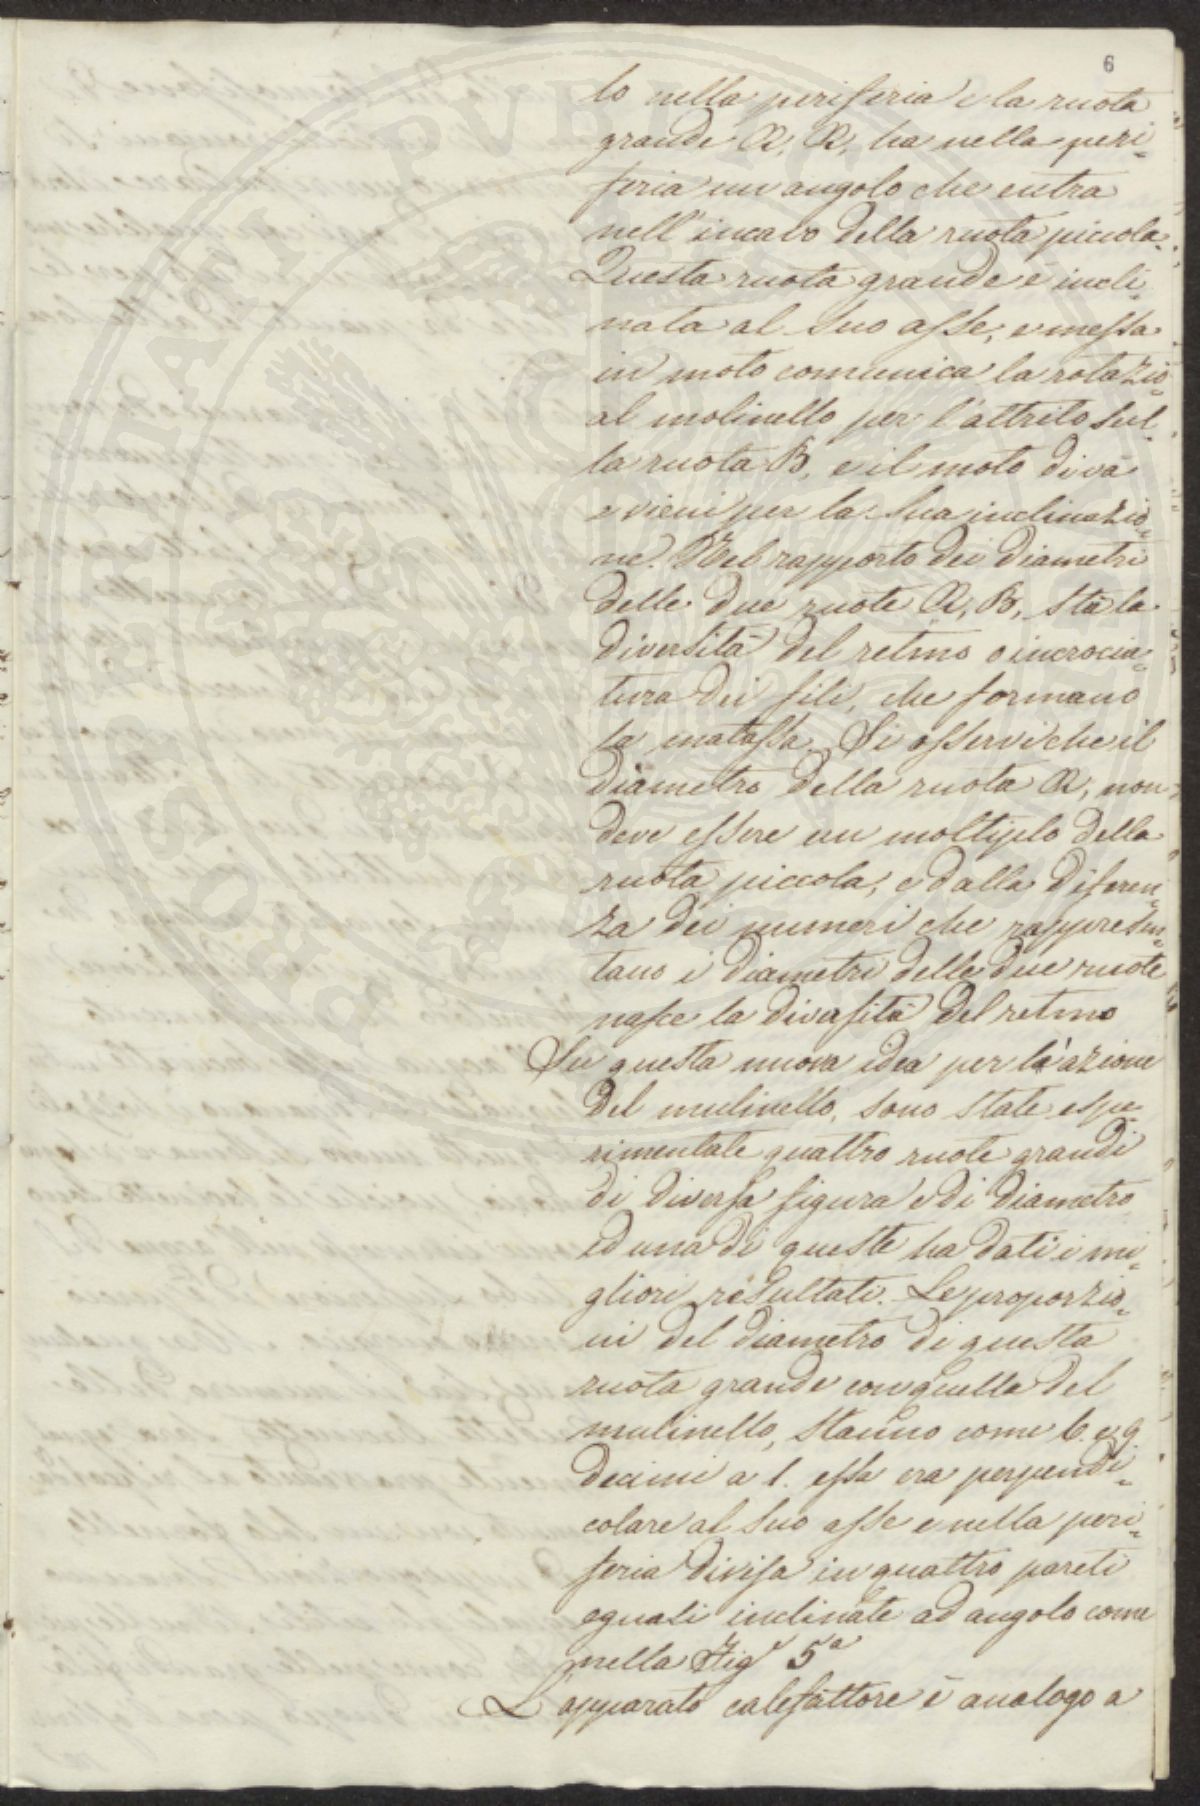 6
lo nella periferia e la ruota
grande A, A, ha nella peri=
feria un angolo che entra
nell'incavo della ruota piccola.
Questa ruota grande è incli=
nata al suo asse, e messa
in moto comunica la rotazio=
al molinello per l'attrito sul=
la ruota B, e il moto di và
e vieni per la sua inclinazio=
ne. Nel rapporto dei diametri
delle due ruote A, B, stà la
diversità del retmo o incrocia=
tura dei fili, che formano
la matassa. Si osservi che il
diametro della ruota A, non
deve essere un moltiplo della
ruota piccola, e dalla diferen=
za dei numeri che rappresen=
tano i diametri delle due ruote
nasce la diversità del retmo
Su questa nuova idea per l'azione
del mulinello, sono state espe=
rimentate quattro ruote grandi
di diversa figura e di diametro
ed una di queste ha dati i mi=
gliori resultati. Le proporzio=
ni del diametro di questa
ruota grande con quella del
mulinello, stanno come 6. e 9
decimi a 1. essa era perpendi=
colare al suo asse e nella peri=
feria divisa in quattro pareti
eguali inclinate ad angolo come
nella Fig.e 5a
L'apparato calefattore è analogo a
PROSPERITATI PVBLICAE